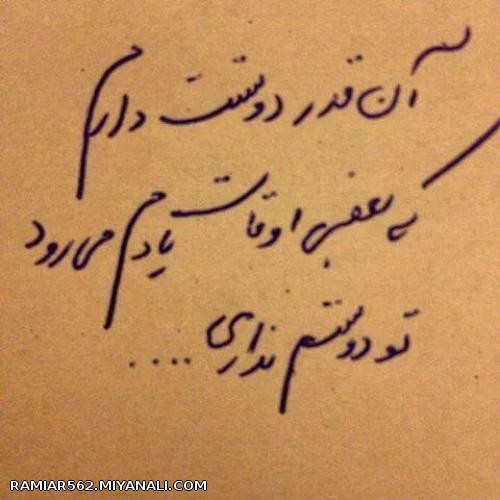 آن قدر دوستت دارم
که بعضی اوقات یادم می رود
تو دوستم نداری ....
RAMIAR562.MIYANALI.COM